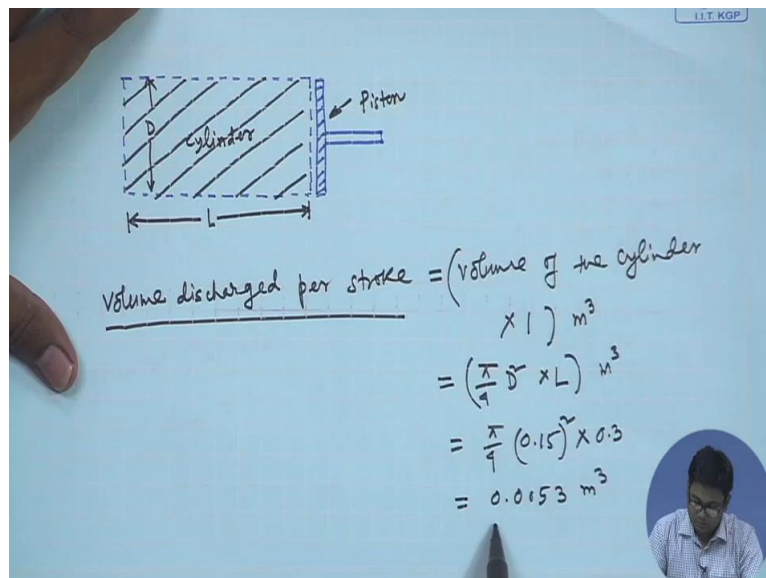 I.I.T. KGP
Piston
D
cylinder
L
volume discharged per stroke = (volume of the cylinder
× 1) m³
= (π/4 D² × L) m³
= π/4 (0.15)² × 0.3
= 0.0053 m³